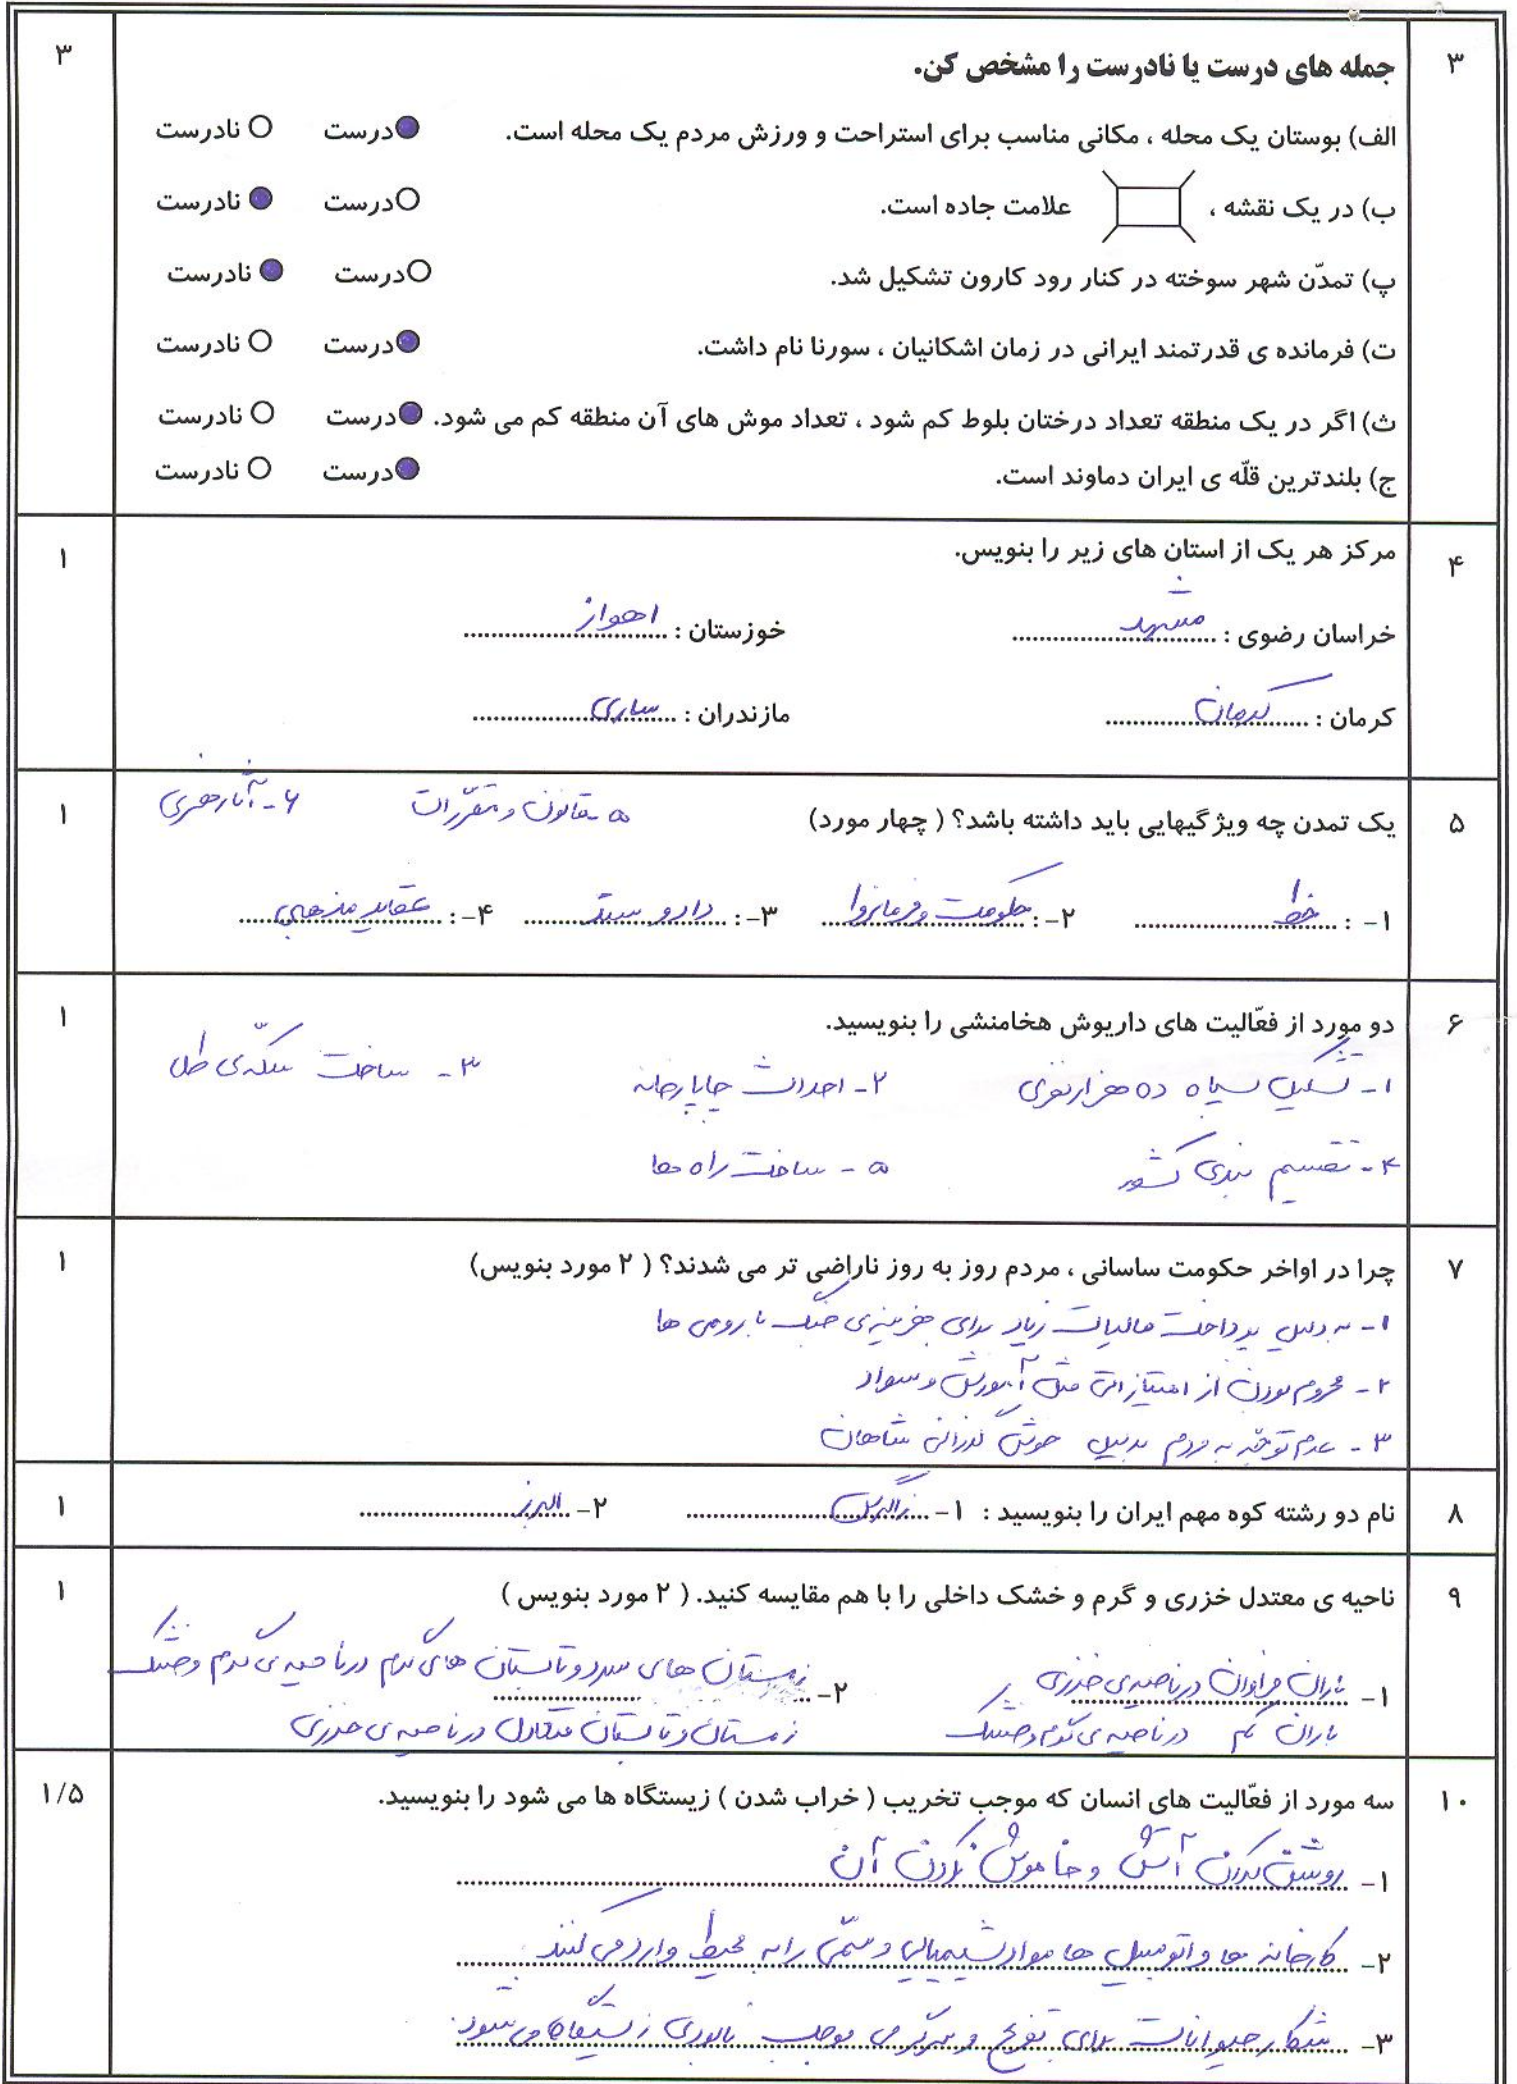 ۳ جمله های درست یا نادرست را مشخص کن. ۳
الف) بوستان یک محله ، مکانی مناسب برای استراحت و ورزش مردم یک محله است. درست نادرست
ب) در یک نقشه ، علامت جاده است. درست نادرست
پ) تمدّن شهر سوخته در کنار رود کارون تشکیل شد. درست نادرست
ت) فرمانده ی قدرتمند ایرانی در زمان اشکانیان ، سورنا نام داشت. درست نادرست
ث) اگر در یک منطقه تعداد درختان بلوط کم شود ، تعداد موش های آن منطقه کم می شود. درست نادرست
ج) بلندترین قلّه ی ایران دماوند است. درست نادرست
۴ مرکز هر یک از استان های زیر را بنویس. ۱
خراسان رضوی : مشهد خوزستان : اهواز
کرمان : کرمان مازندران : ساری
۵ یک تمدن چه ویژگیهایی باید داشته باشد؟ ( چهار مورد) ۵- قانون و مقرّرات ۶- آثار هنری ۱
۱- : خط ۲-: حکومت و فرمانروا ۳-: داد و ستد ۴-: عقاید مذهبی
۶ دو مورد از فعّالیت های داریوش هخامنشی را بنویسید. ۱
۱- تشکیل سپاه ده هزار نفری ۲- احداث چاپارخانه ۳- ساخت سکّه ی طلا
۴- تقسیم بندی کشور ۵- ساخت راه ها
۷ چرا در اواخر حکومت ساسانی ، مردم روز به روز ناراضی تر می شدند؟ ( ۲ مورد بنویس) ۱
۱- به دلیل پرداخت مالیات زیاد برای هزینه ی جنگ با رومی ها
۲- محروم بودن از امتیازاتی مثل آموزش و سواد
۳- عدم توجّه به مردم بدلیل خوش گذرانی شاهان
۸ نام دو رشته کوه مهم ایران را بنویسید : ۱- زاگرس ۲- البرز ۱
۹ ناحیه ی معتدل خزری و گرم و خشک داخلی را با هم مقایسه کنید. ( ۲ مورد بنویس ) ۱
۱- باران فراوان در ناحیه ی خزری ۲- زمستان های سرد و تابستان های گرم در ناحیه ی گرم و خشک
باران کم در ناحیه ی گرم و خشک زمستان و تابستان متعادل در ناحیه ی خزری
۱۰ سه مورد از فعّالیت های انسان که موجب تخریب ( خراب شدن ) زیستگاه ها می شود را بنویسید. ۱/۵
۱- روشن کردن آتش و خاموش نکردن آن
۲- کارخانه ها و اتومبیل ها مواد شیمیایی و سمّی را به محیط وارد می کنند.
۳- شکار حیوانات برای تفریح و سرگرمی موجب نابودی زیستگاه می شود.